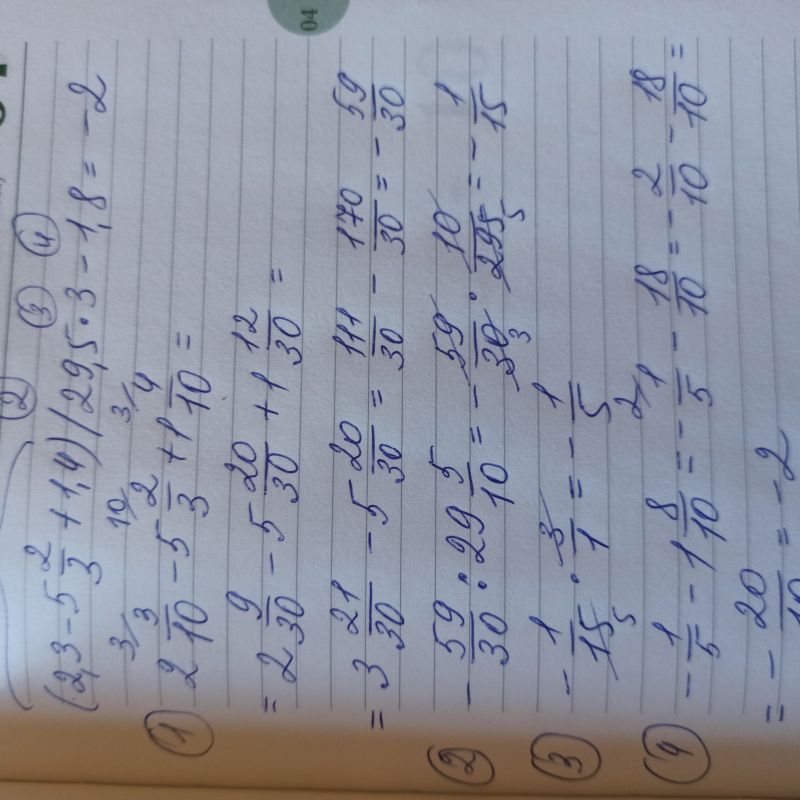 04
② ③ ④
(2,3 - 5 2/3 + 1,4) / 29,5 · 3 - 1,8 = -2
① 2 3/10 - 5 2/3 + 1 4/10 =
= 2 9/30 - 5 20/30 + 1 12/30 =
= 3 21/30 - 5 20/30 = 111/30 - 170/30 = - 59/30
② - 59/30 : 29 5/10 = - 59/30 · 10/295 = - 1/15
③ - 1/15 · 3/1 = - 1/5
④ - 1/5 - 1 8/10 = - 1/5 - 18/10 = - 2/10 - 18/10 =
= - 20/10 = -2